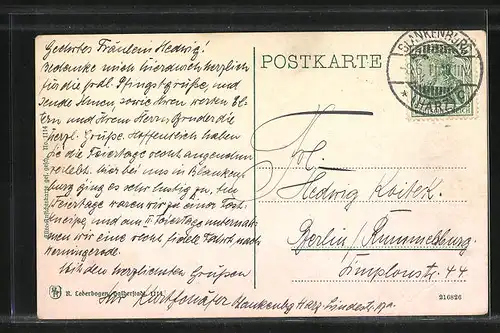 Geehrtes Fräulein Hedwig!
Bedanke mich hierdurch herzlich
für die frdl. Pfingstgrüße, und
sende Ihnen sowie Ihren werten El-
tern und Ihrem Herrn Bruder die
herzl. Grüße. Hoffentlich haben
Sie die Feiertage recht angenehm
verlebt. Hier bei uns in Blanken-
burg ging es sehr lustig zu, im
Feiertage waren wir zu einer
und am II Feiertage unternah-
men wir eine recht fidele Fahrt nach
Mit den herzlichsten Grüßen
Ihr Kurt Schäfer Blankenbg Harz Lindestr.
R. Lederbogen, Halberstadt. 1114
POSTKARTE
BLANKENBURG
* (HARZ)
Frl.
Hedwig
Berlin / Rummelsburg.
Simplonstr. 44
216826